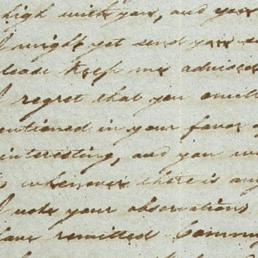 high with you, and you
I might yet send you s
please keep me advised
I regret that you omitt
mentioned in your favor o
interesting, and you w
is whenever there is any
I note your observations
have remitted Commu